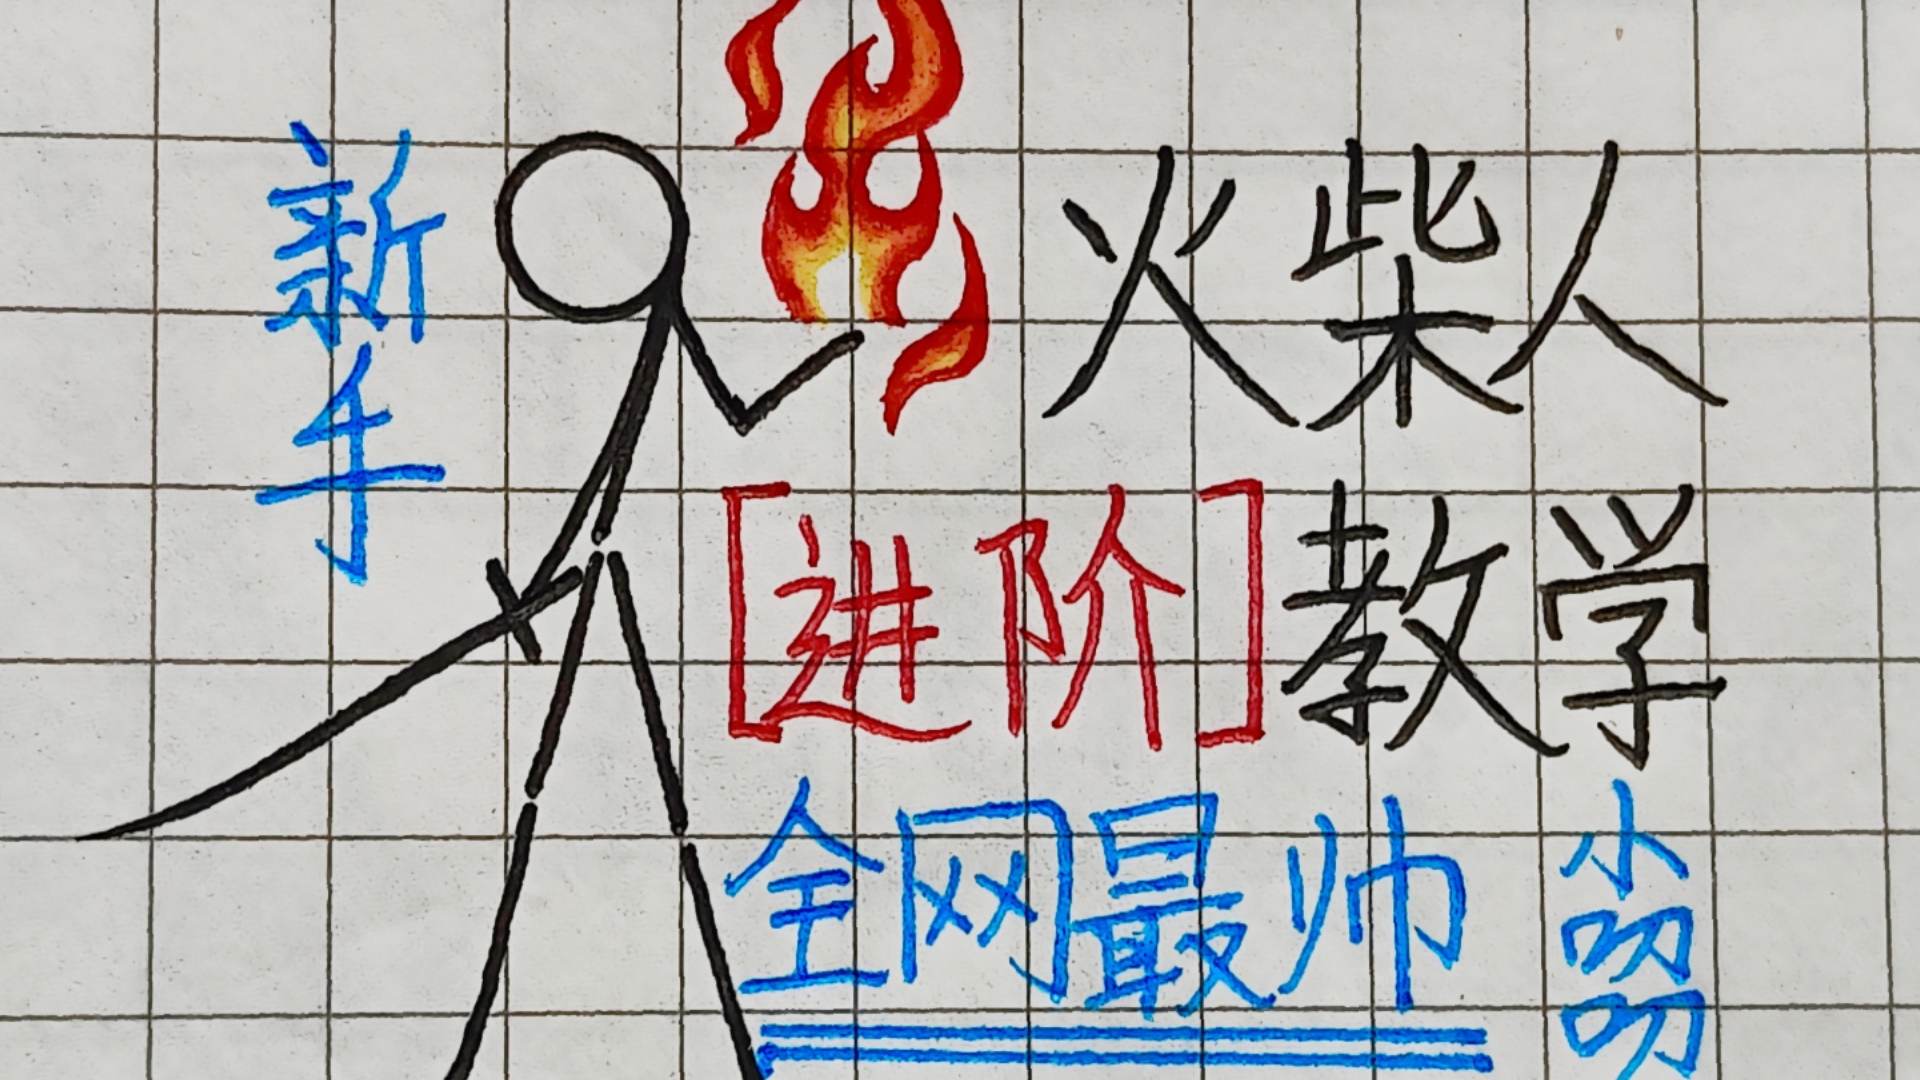 新手
火柴人
[进阶]教学
全网最帅
小叨叨